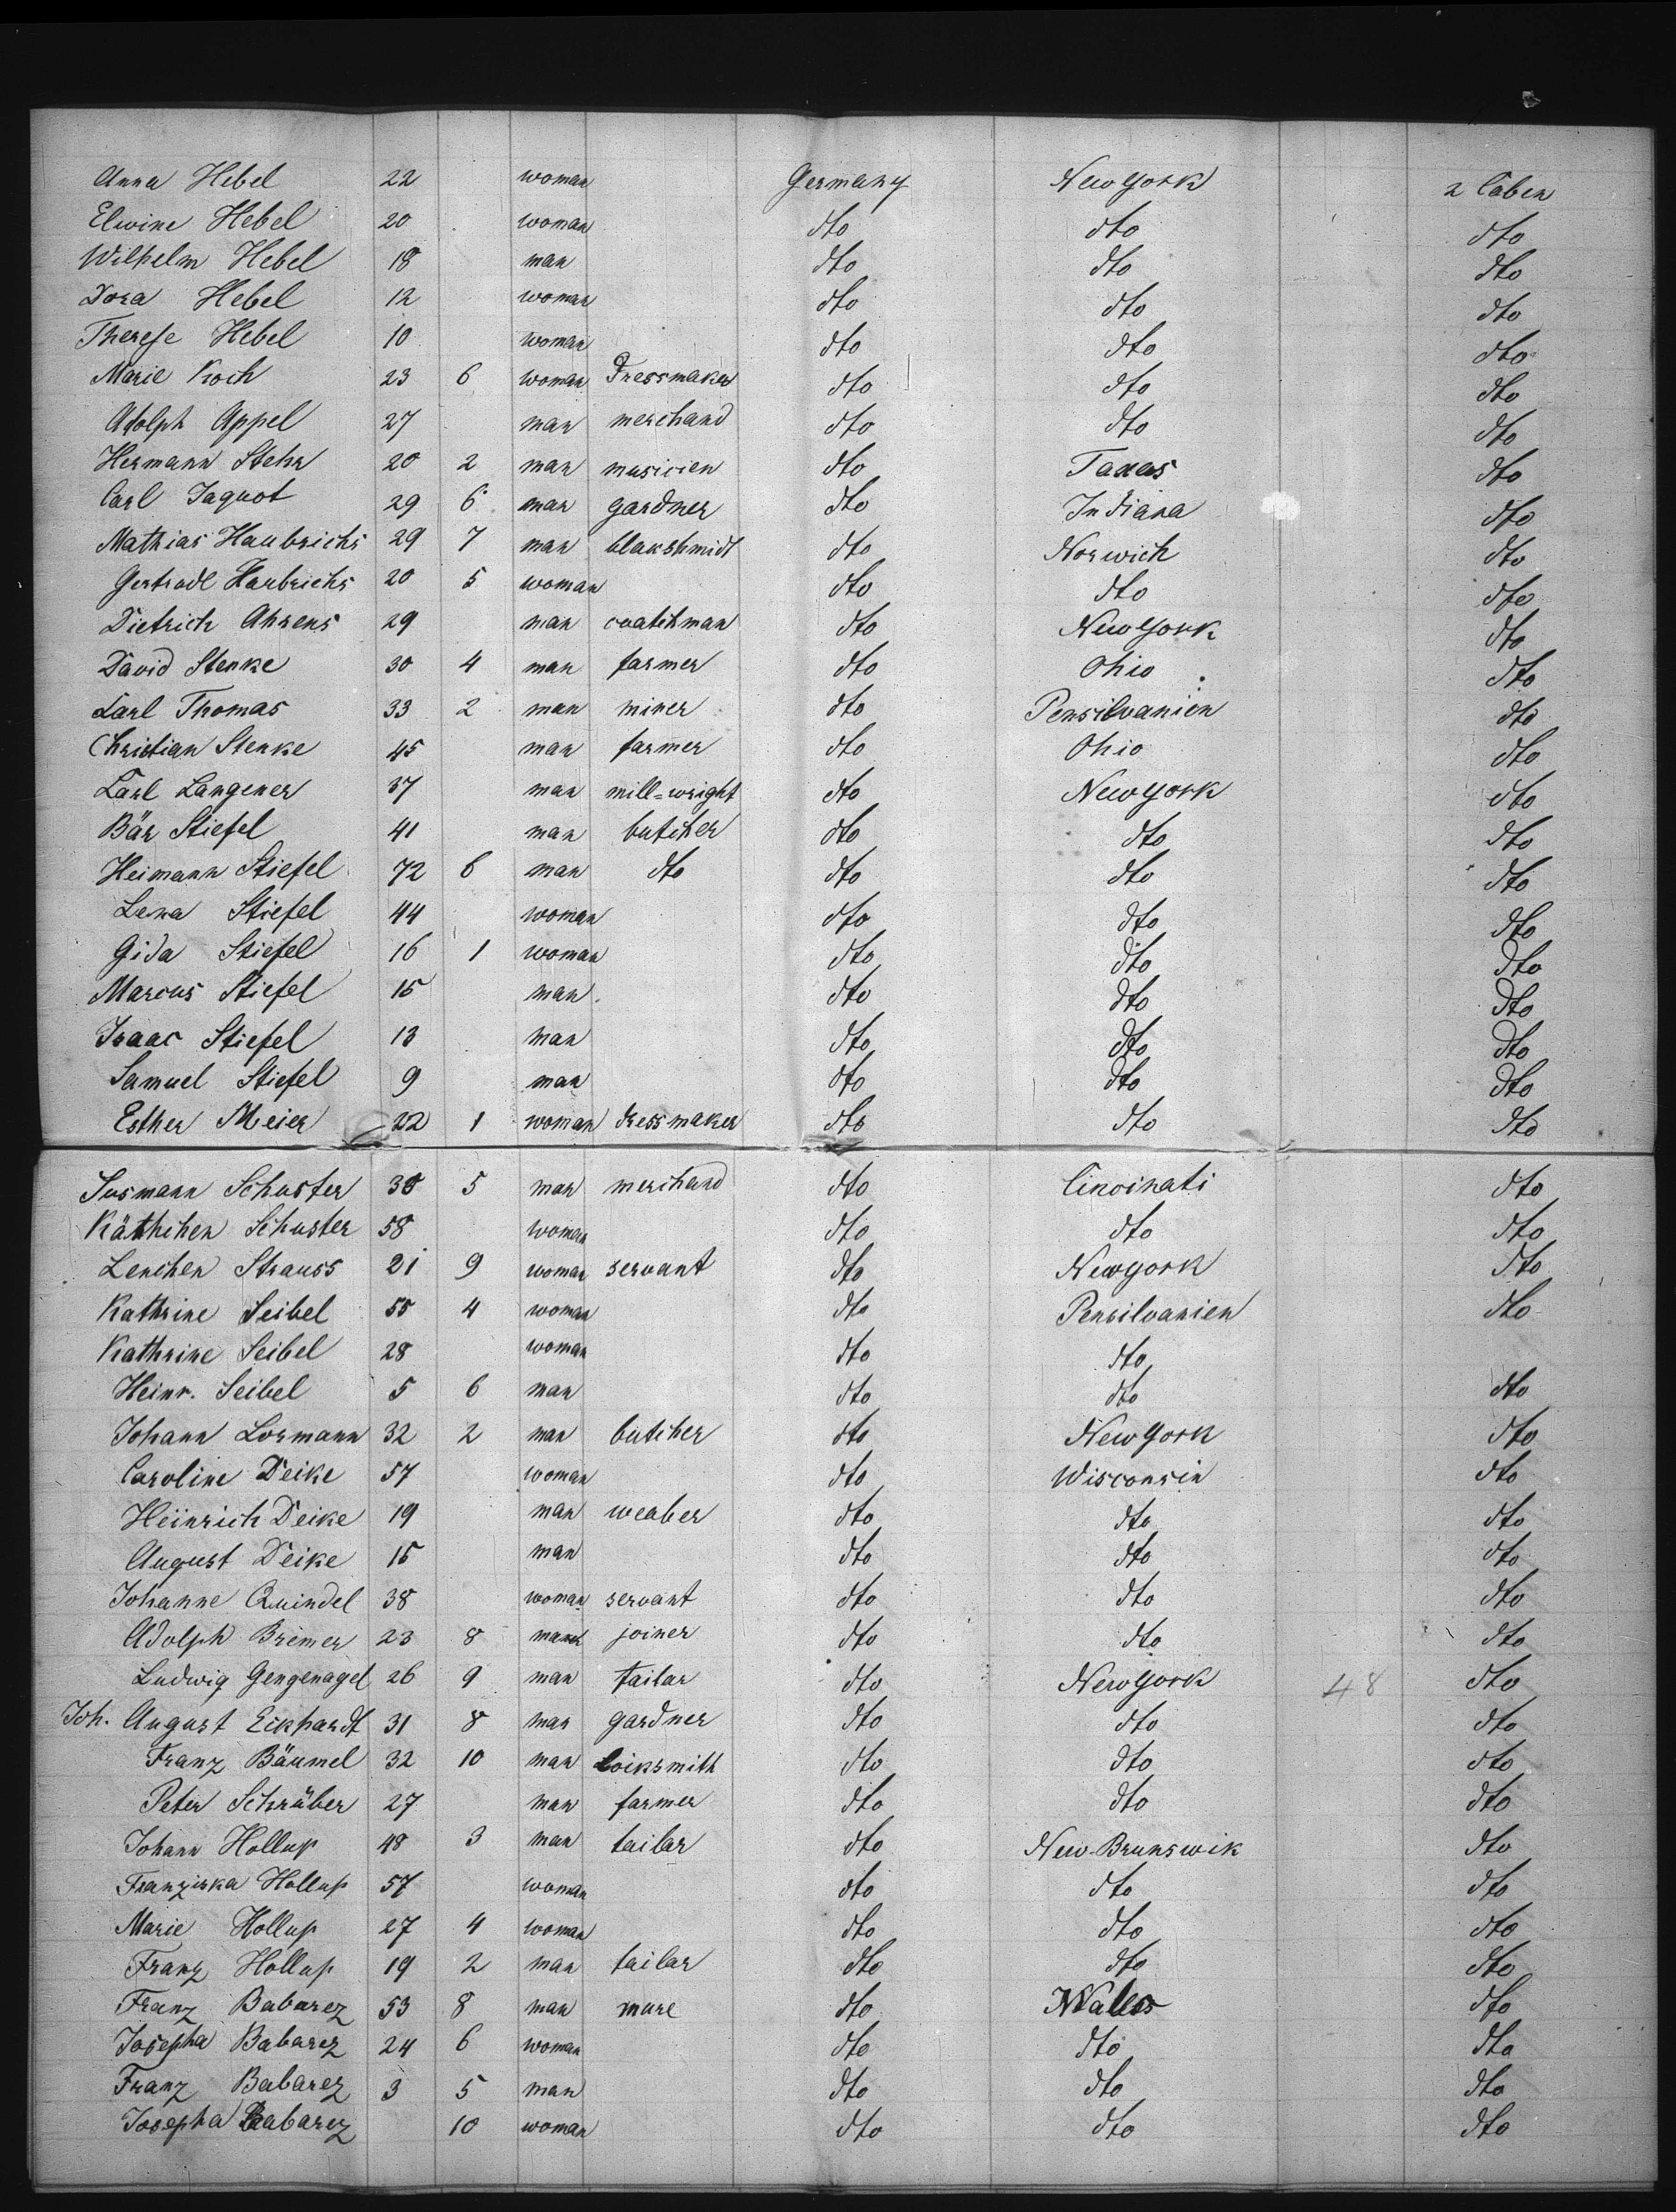 Anna Hebel 22 woman Germany New York 2 Caben
Elwine Hebel 20 woman dto dto dto
Wilhelm Hebel 18 man dto dto dto
Dora Hebel 12 woman dto dto dto
Therese Hebel 10 woman dto dto dto
Marie Koch 23 6 woman Dressmaker dto dto dto
Adolph Appel 27 man merchand dto dto dto
Hermann Stehr 20 2 man musicien dto Taxas dto
Carl Jaquot 29 6 man gardner dto Indiana dto
Mathias Haubrichs 29 7 man blakshmidt dto Norwich dto
Gertrudl Haubrichs 20 5 woman dto dto dto
Dietrich Ahrens 29 man coatchman dto New York dto
David Stenke 30 4 man farmer dto Ohio dto
Carl Thomas 33 2 man miner dto Pensilvanien dto
Christian Stenke 45 man farmer dto Ohio dto
Carl Langener 37 man mill=wright dto New York dto
Bär Stiefel 41 man butcher dto dto dto
Heimann Stiefel 72 6 man dto dto dto dto
Lena Stiefel 44 woman dto dto dto
Gida Stiefel 16 1 woman dto dto dto
Marcus Stiefel 15 man dto dto dto
Isaac Stiefel 13 man dto dto dto
Samuel Stiefel 9 man dto dto dto
Esther Meier 22 1 woman dressmaker dto dto dto
Susmann Schuster 38 5 man merchand dto Cincinati dto
Käthchen Schuster 58 woman dto dto dto
Lenchen Strauss 21 9 woman servant dto New York dto
Kathrine Seibel 55 4 woman dto Pensilvanien dto
Kathrine Seibel 28 woman dto dto
Heinr. Seibel 5 6 man dto dto dto
Johann Lormann 32 2 man butcher dto New York dto
Caroline Deike 57 woman dto Wisconsin dto
Heinrich Deike 19 man weaber dto dto dto
August Deike 15 man dto dto dto
Johanne Quindel 38 woman servant dto dto dto
Adolph Bremer 23 8 man joiner dto dto dto
Ludwig Gengenagel 26 9 man tailar dto New York 48 dto
Joh. August Eckhardt 31 8 man gardner dto dto dto
Franz Bäumel 32 10 man locksmith dto dto dto
Peter Schräber 27 man farmer dto dto dto
Johann Hollup 48 3 man tailar dto New-Brunswik dto
Franziska Hollup 57 woman dto dto dto
Marie Hollup 27 4 woman dto dto dto
Franz Hollup 19 2 man tailar dto dto dto
Franz Babarez 53 8 man mure dto Wales dto
Josepha Babarez 24 6 woman dto dto dto
Franz Babarez 3 5 man dto dto dto
Josepha Babarez 10 woman dto dto dto